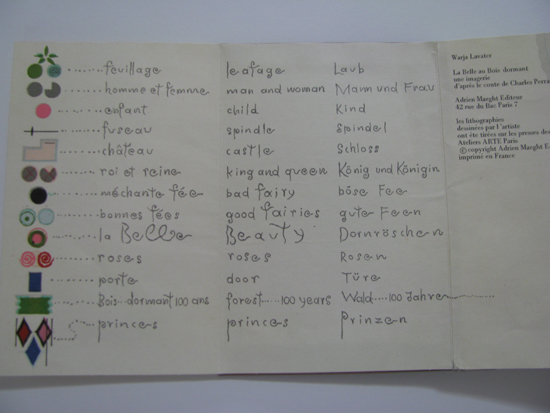 feuillage leafage Laub
homme et femme man and woman Mann und Frau
enfant child Kind
fuseau spindle Spindel
château castle Schloss
roi et reine king and queen König und Königin
méchante fée bad fairy böse Fee
bonnes fées good fairies gute Feen
la Belle Beauty Dornröschen
roses roses Rosen
porte door Türe
Bois-dormant 100 ans forest.....100 years Wald....100 Jahre
princes princes Prinzen
Warja Lavater
La Belle au Bois dormant
une imagerie
d'après le conte de Charles
Adrien Maeght Editeur
42 rue du Bac Paris 7
les lithographies
dessinées par l'artiste
ont été tirées sur les presses des
Ateliers ARTE Paris
© copyright Adrien Maeght E
imprimé en France